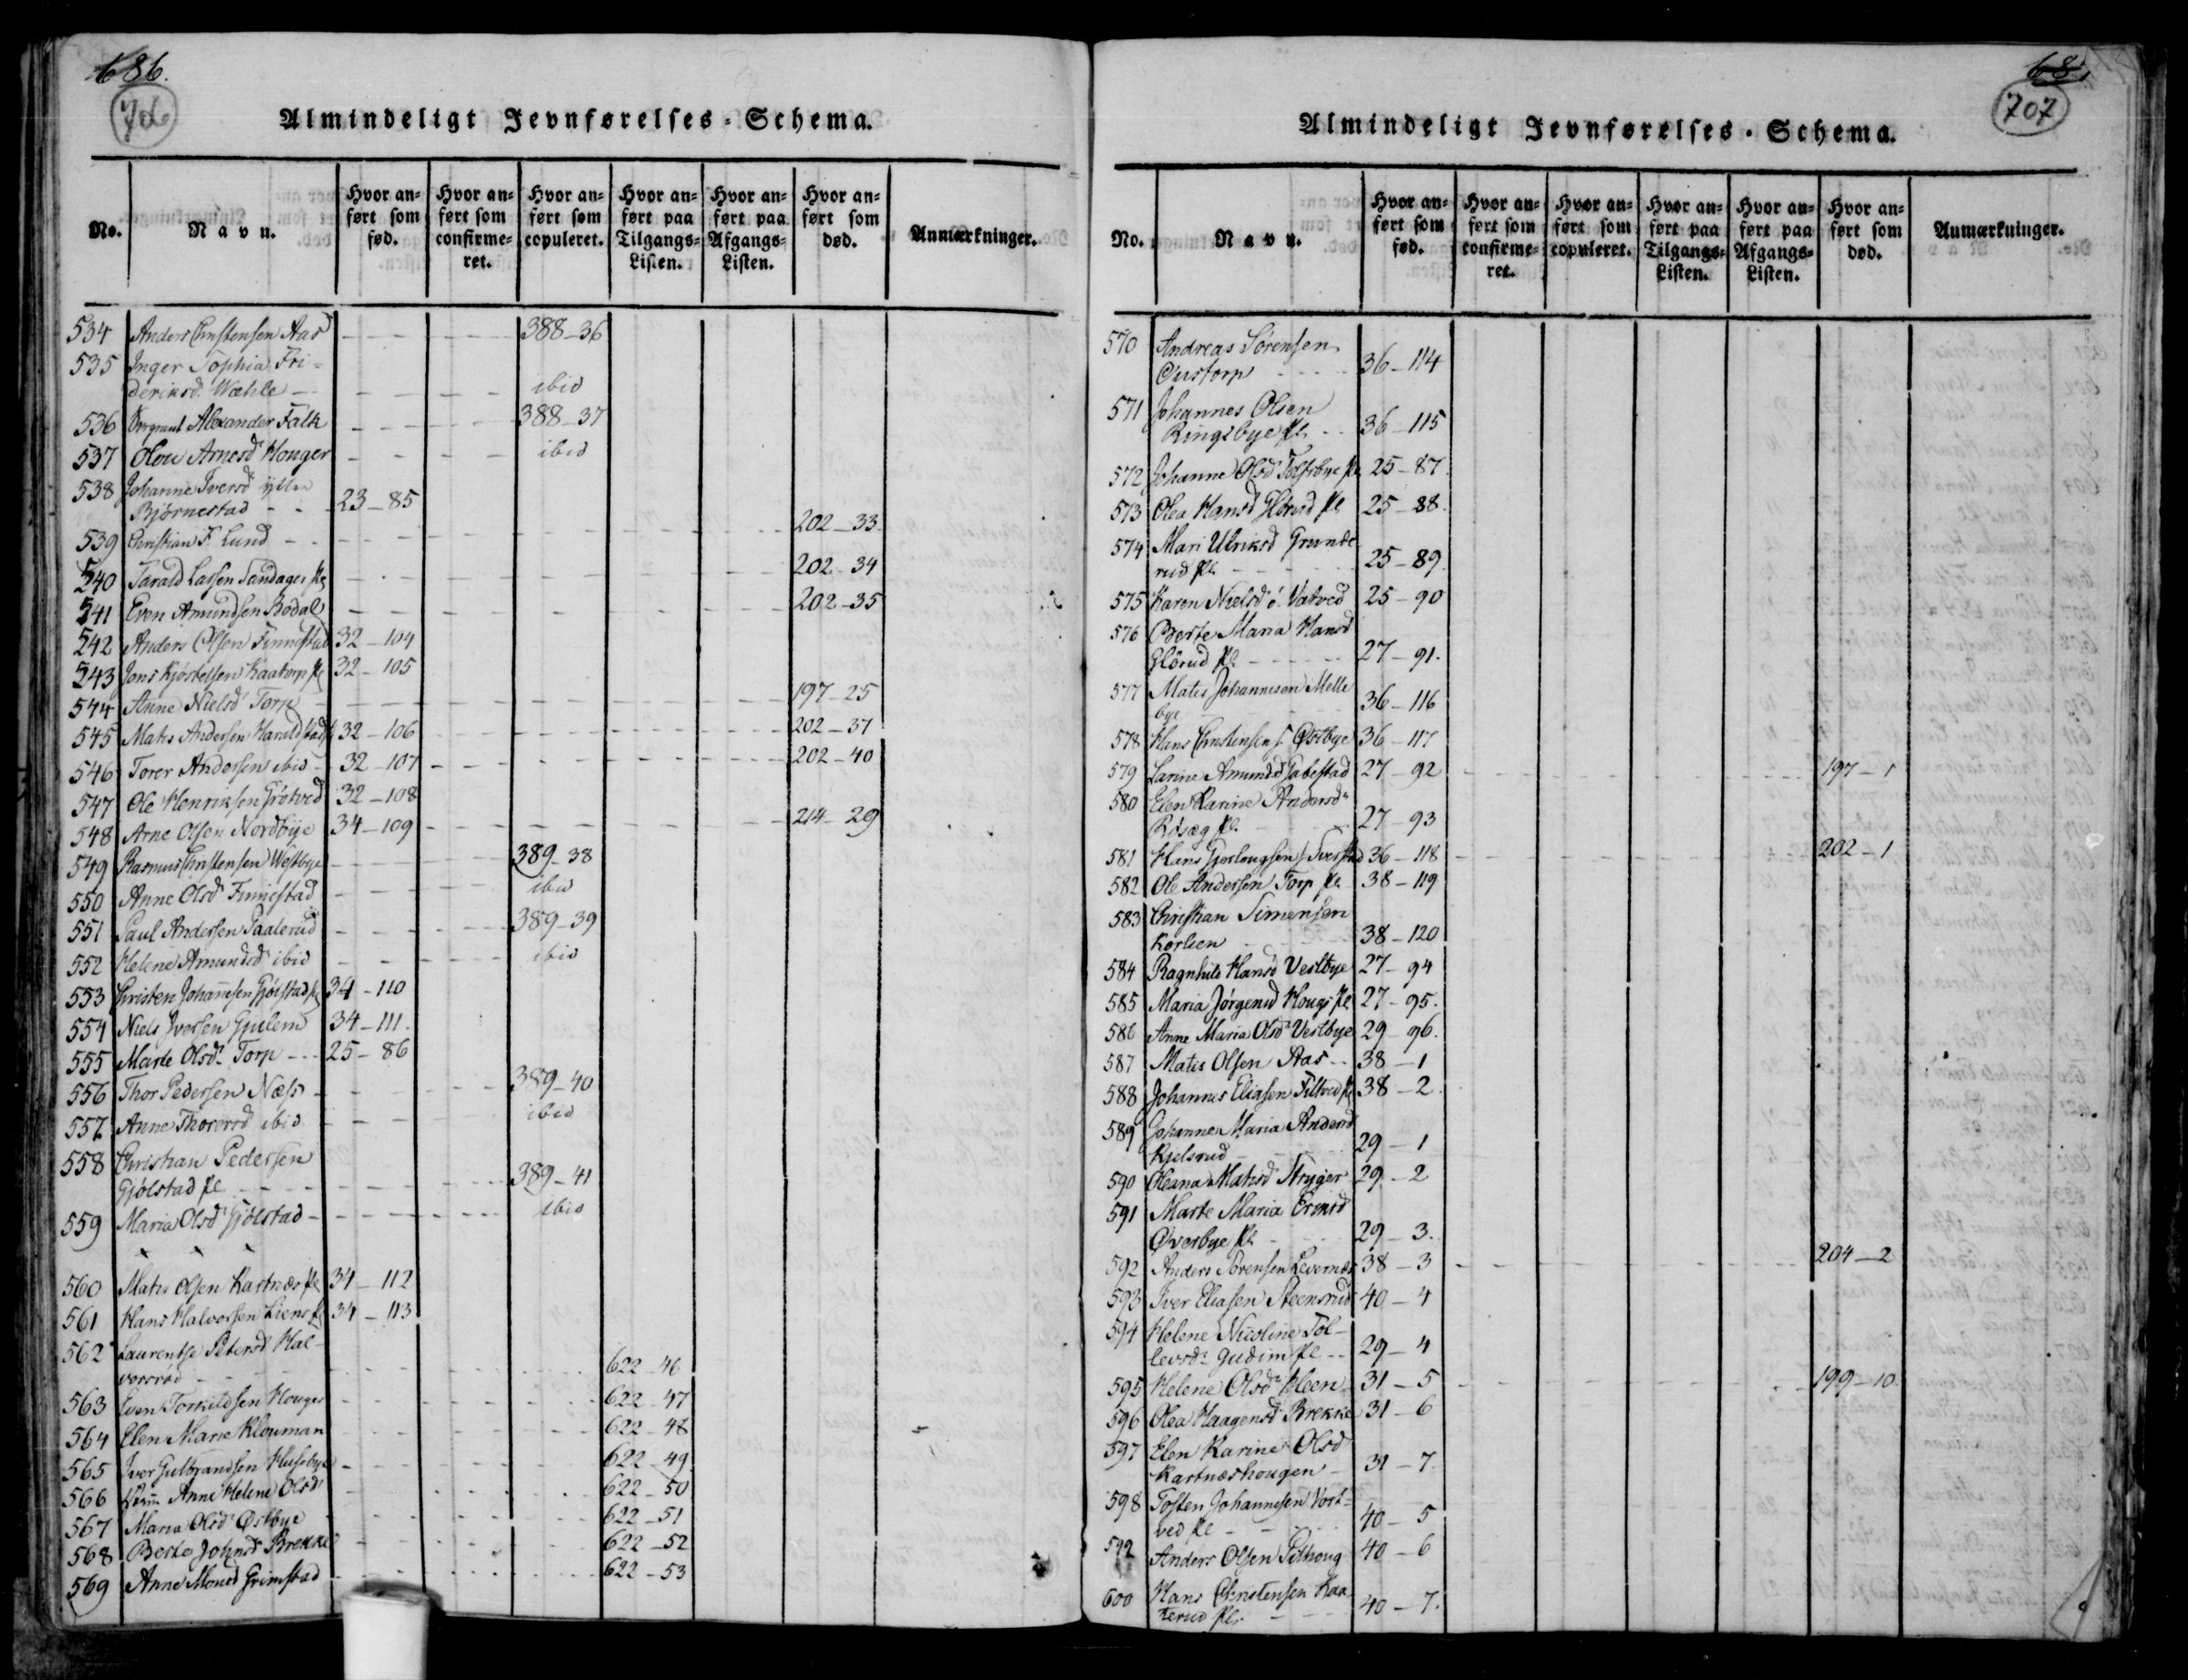 686.
706
Almindeligt Jevnførelses-Schema.
No. Navn. Hvor anført som fød. Hvor anført som confirmeret. Hvor anført som copuleret. Hvor anført paa Tilgangs-Listen. Hvor anført paa Afgangs-Listen. Hvor anført som død. Anmærkninger.
534 Anders Christensen Aas 388-36
535 Inger Sophia Fri-
deriksd. Wæhle ibid
536 Alexander Falk 388-37
537 Olou Arnesd Houger ibid
538 Johanne Iversd
Bjørnestad 23-85
539 Christian F. Lund 202-33
540 Tarald Larsen Sandager pl 202-34
541 Even Amundsen Bodal 202-35
542 Anders Olsen Finnestad 32-104
543 Jens Kjøstelsen Kaatorp pl 32-105
544 Anne Nielsd Torp 197-25
545 Mats Andersen Haraldstad 32-106 202-37
546 Torer Andersen ibid 32-107 202-40
547 Ole Henriksen Grøtved 32-108
548 Arne Olsen Nordbye 34-109 214-29
549 Rasmus Christensen Westbye 389-38
550 Anne Olsd Finnestad ibid
551 Paul Andersen Paalerud 389-39
552 Helene Amundsd ibid ibid
553 Christen Johannesen Gjølstad pl 34-110
554 Niels Iversen Gjulem 34-111.
555 Marte Olsd. Torp 25-86
556 Thor Pedersen Næss 389-40
557 Anne Thorersd ibid ibid
558 Christian Pedersen
Gjølstad pl 389-41
559 Maria Olsd Gjølstad ibid
560 Matis Olsen Kastnæs pl 34-112
561 Hans Halvorsen Liens pl 34-113
562 Laurentse Petersd Hal-
vorsrød 622-46
563 Even Torkildsen Houger 622-47
564 Elen Marie Klouman 622-48
565 Iver Gulbrandsen Husebye 622-49
566 Anne Helene Olsd 622-50
567 Maria Olsd Østbye 622-51
568 Berte Johnsd Brekke 622-52
569 Anne Monsd Grimstad 622-53
68
707
Almindeligt Jevnførelses-Schema.
No. Navn. Hvor anført som fød. Hvor anført som confirmeret. Hvor anført som copuleret. Hvor anført paa Tilgangs-Listen. Hvor anført paa Afgangs-Listen. Hvor anført som død. Anmærkninger.
570 Andreas Sørensen
36-114
571 Johannes Olsen
Ringsbye pl. 36-115
572 Johanne Olsd Tolfsbye pl 25-87
573 Olea Hansd Glørud pl 25-88.
574 Mari Ulriksd Grunde
rud pl. 25-89
575 Karen Nielsd ø. Vatved 25-90
576 Berte Maria Hansd
Glørud pl 27-91.
577 Matis Johannesen Melle
bye 36-116
578 Hans Christensen s. Østbye 36-117
579 Larine Amundsd Gabestad 27-92 197-1
580 Elen Karine Andersd
Røsæg pl. 27-93
581 Hans Gjerlougsen s. Tverstad 36-118 202-1
582 Ole Andersen Torp pl. 38-119
583 Christian Simensen
Korlien 38-120
584 Ragnhild Hansd Vestbye 27-94
585 Maria Jørgensd Hougs pl 27-95.
586 Anne Maria Olsd Vestbye 29-96.
587 Matis Olsen Aas 38-1
588 Johannes Eliasen Filtved pl 38-2.
589 Johanne Maria Andersd
Kjelsrud 29-1
590 Oleana Matisd Stryger 29-2
591 Marte Maria Ericsd
Øverbye pl 29-3.
592 Anders Sørensen Levernæs 38-3 204-2
593 Iver Eliasen Steensrud 40-4
594 Helene Nicoline Tol-
levsd. Gudim pl 29-4
595 Helene Olsd Kleen 31-5 199-10
596 Olea Haagensd Brekke 31-6
597 Elen Karine Olsd
Kastnæshougen 31-7
598 Tosten Johannesen Vort-
ved pl 40-5
592 Anders Olsen Sølhoug 40-6
600 Hans Christensen Kaa
terud pl. 40-7.